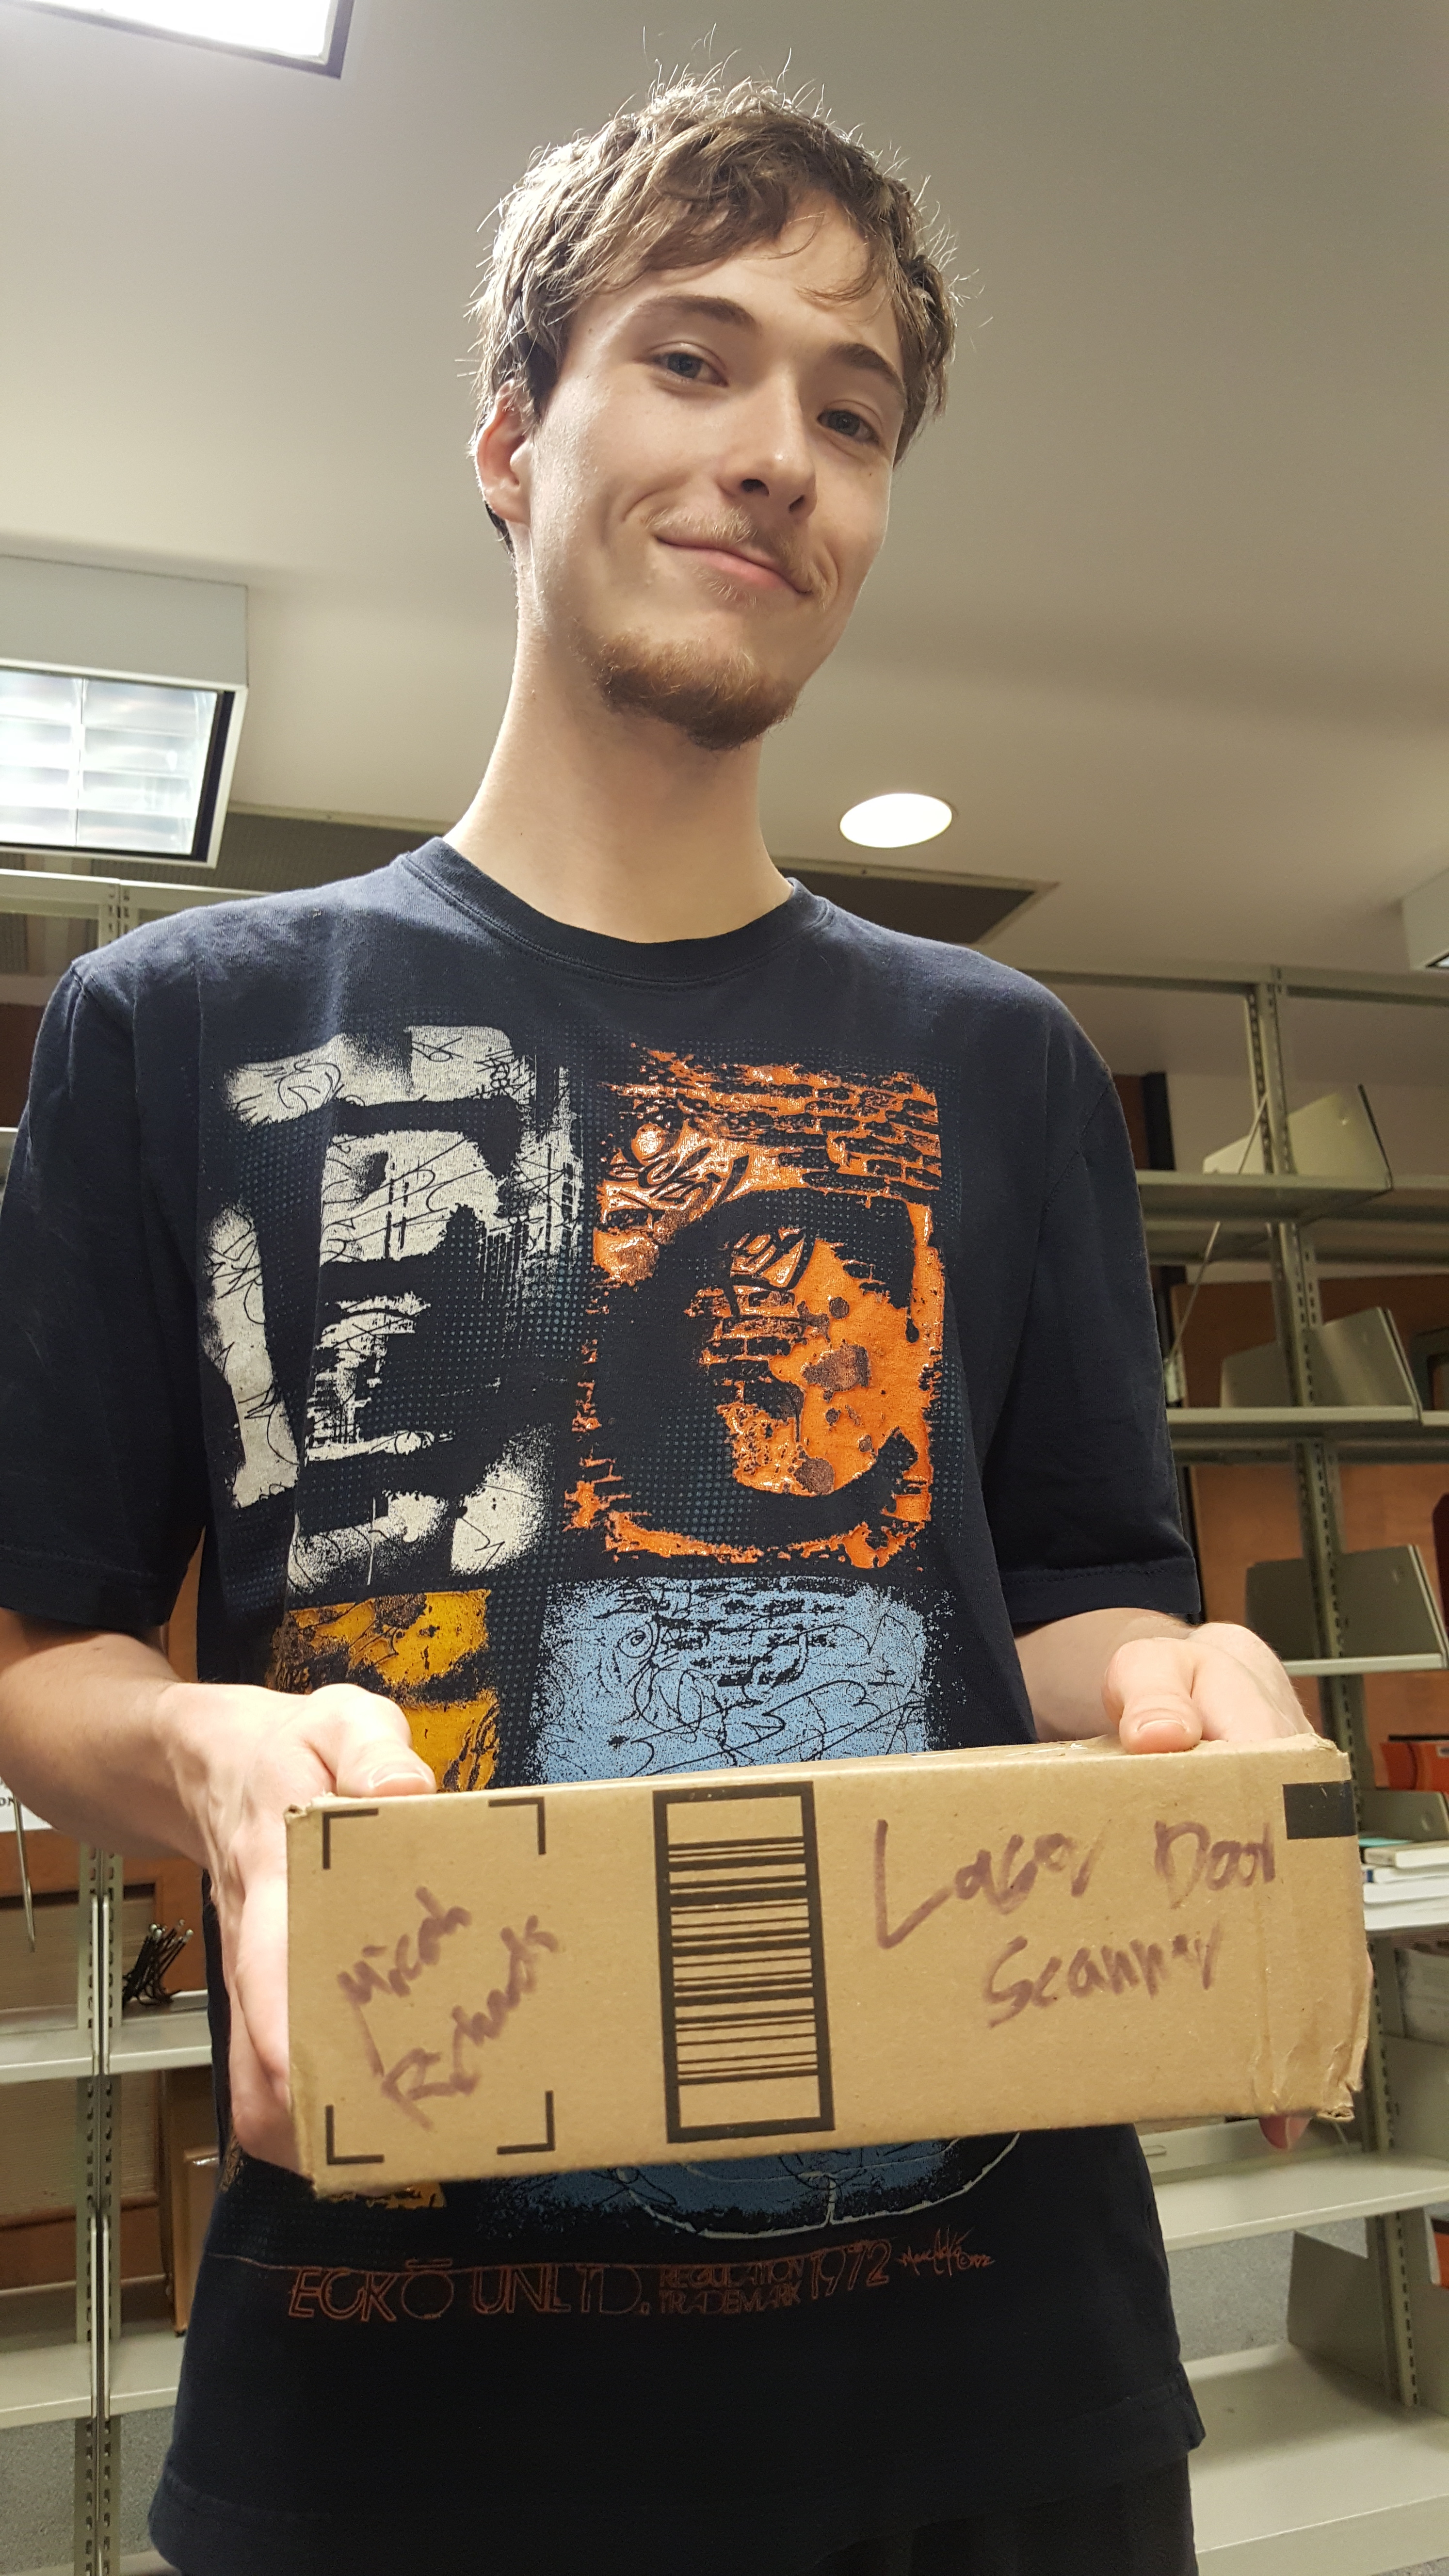 Micah
Richards
Laser Door
Scanner
ECKŌ UNLTD. REGULATION 1972
TRADEMARK